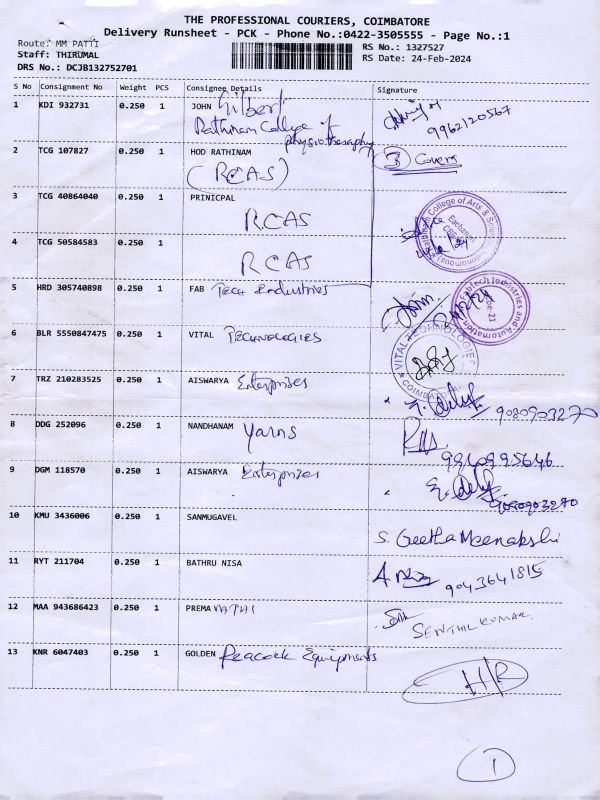 THE PROFESSIONAL COURIERS, COIMBATORE
Delivery Runsheet - PCK - Phone No.:0422-3505555 - Page No.:1
Route: MM PATTI
RS No.: 1327527
Staff: THIRUMAL
RS Date: 24-Feb-2024
DRS No.: DCJB132752701
S No Consignment No Weight PCS Consignee Details Signature
1 KDI 932731 0.250 1 JOHN Gilbert
Rathinam College of
physiotherapy
9962120567
2 TCG 107827 0.250 1 HOD RATHINAM
(RCAS)
3 Covers
3 TCG 40864040 0.250 1 PRINICPAL
RCAS
Rathinam College of Arts & Science
(Autonomous)
4 TCG 50584583 0.250 1
RCAS
5 HRD 305740898 0.250 1 FAB Tech Industries
Fabtech Industries and Automation
6 BLR 5550847475 0.250 1 VITAL TECHNOLOGIES
VITAL TECHNOLOGIES
COIMBATORE
7 TRZ 210283525 0.250 1 AISWARYA Enterprises
9080903270
8 DDG 252096 0.250 1 NANDHANAM Yarns
9940995646
9 DGM 118570 0.250 1 AISWARYA Enterprises
9080903270
10 KMU 3436006 0.250 1 SANMUGAVEL
S. Geetha Meenakshi
11 RYT 211704 0.250 1 BATHRU NISA
9043641815
12 MAA 943686423 0.250 1 PREMA VATHI
SENTHIL KUMAR
13 KNR 6047403 0.250 1 GOLDEN Peacock Equipments
H/R
1